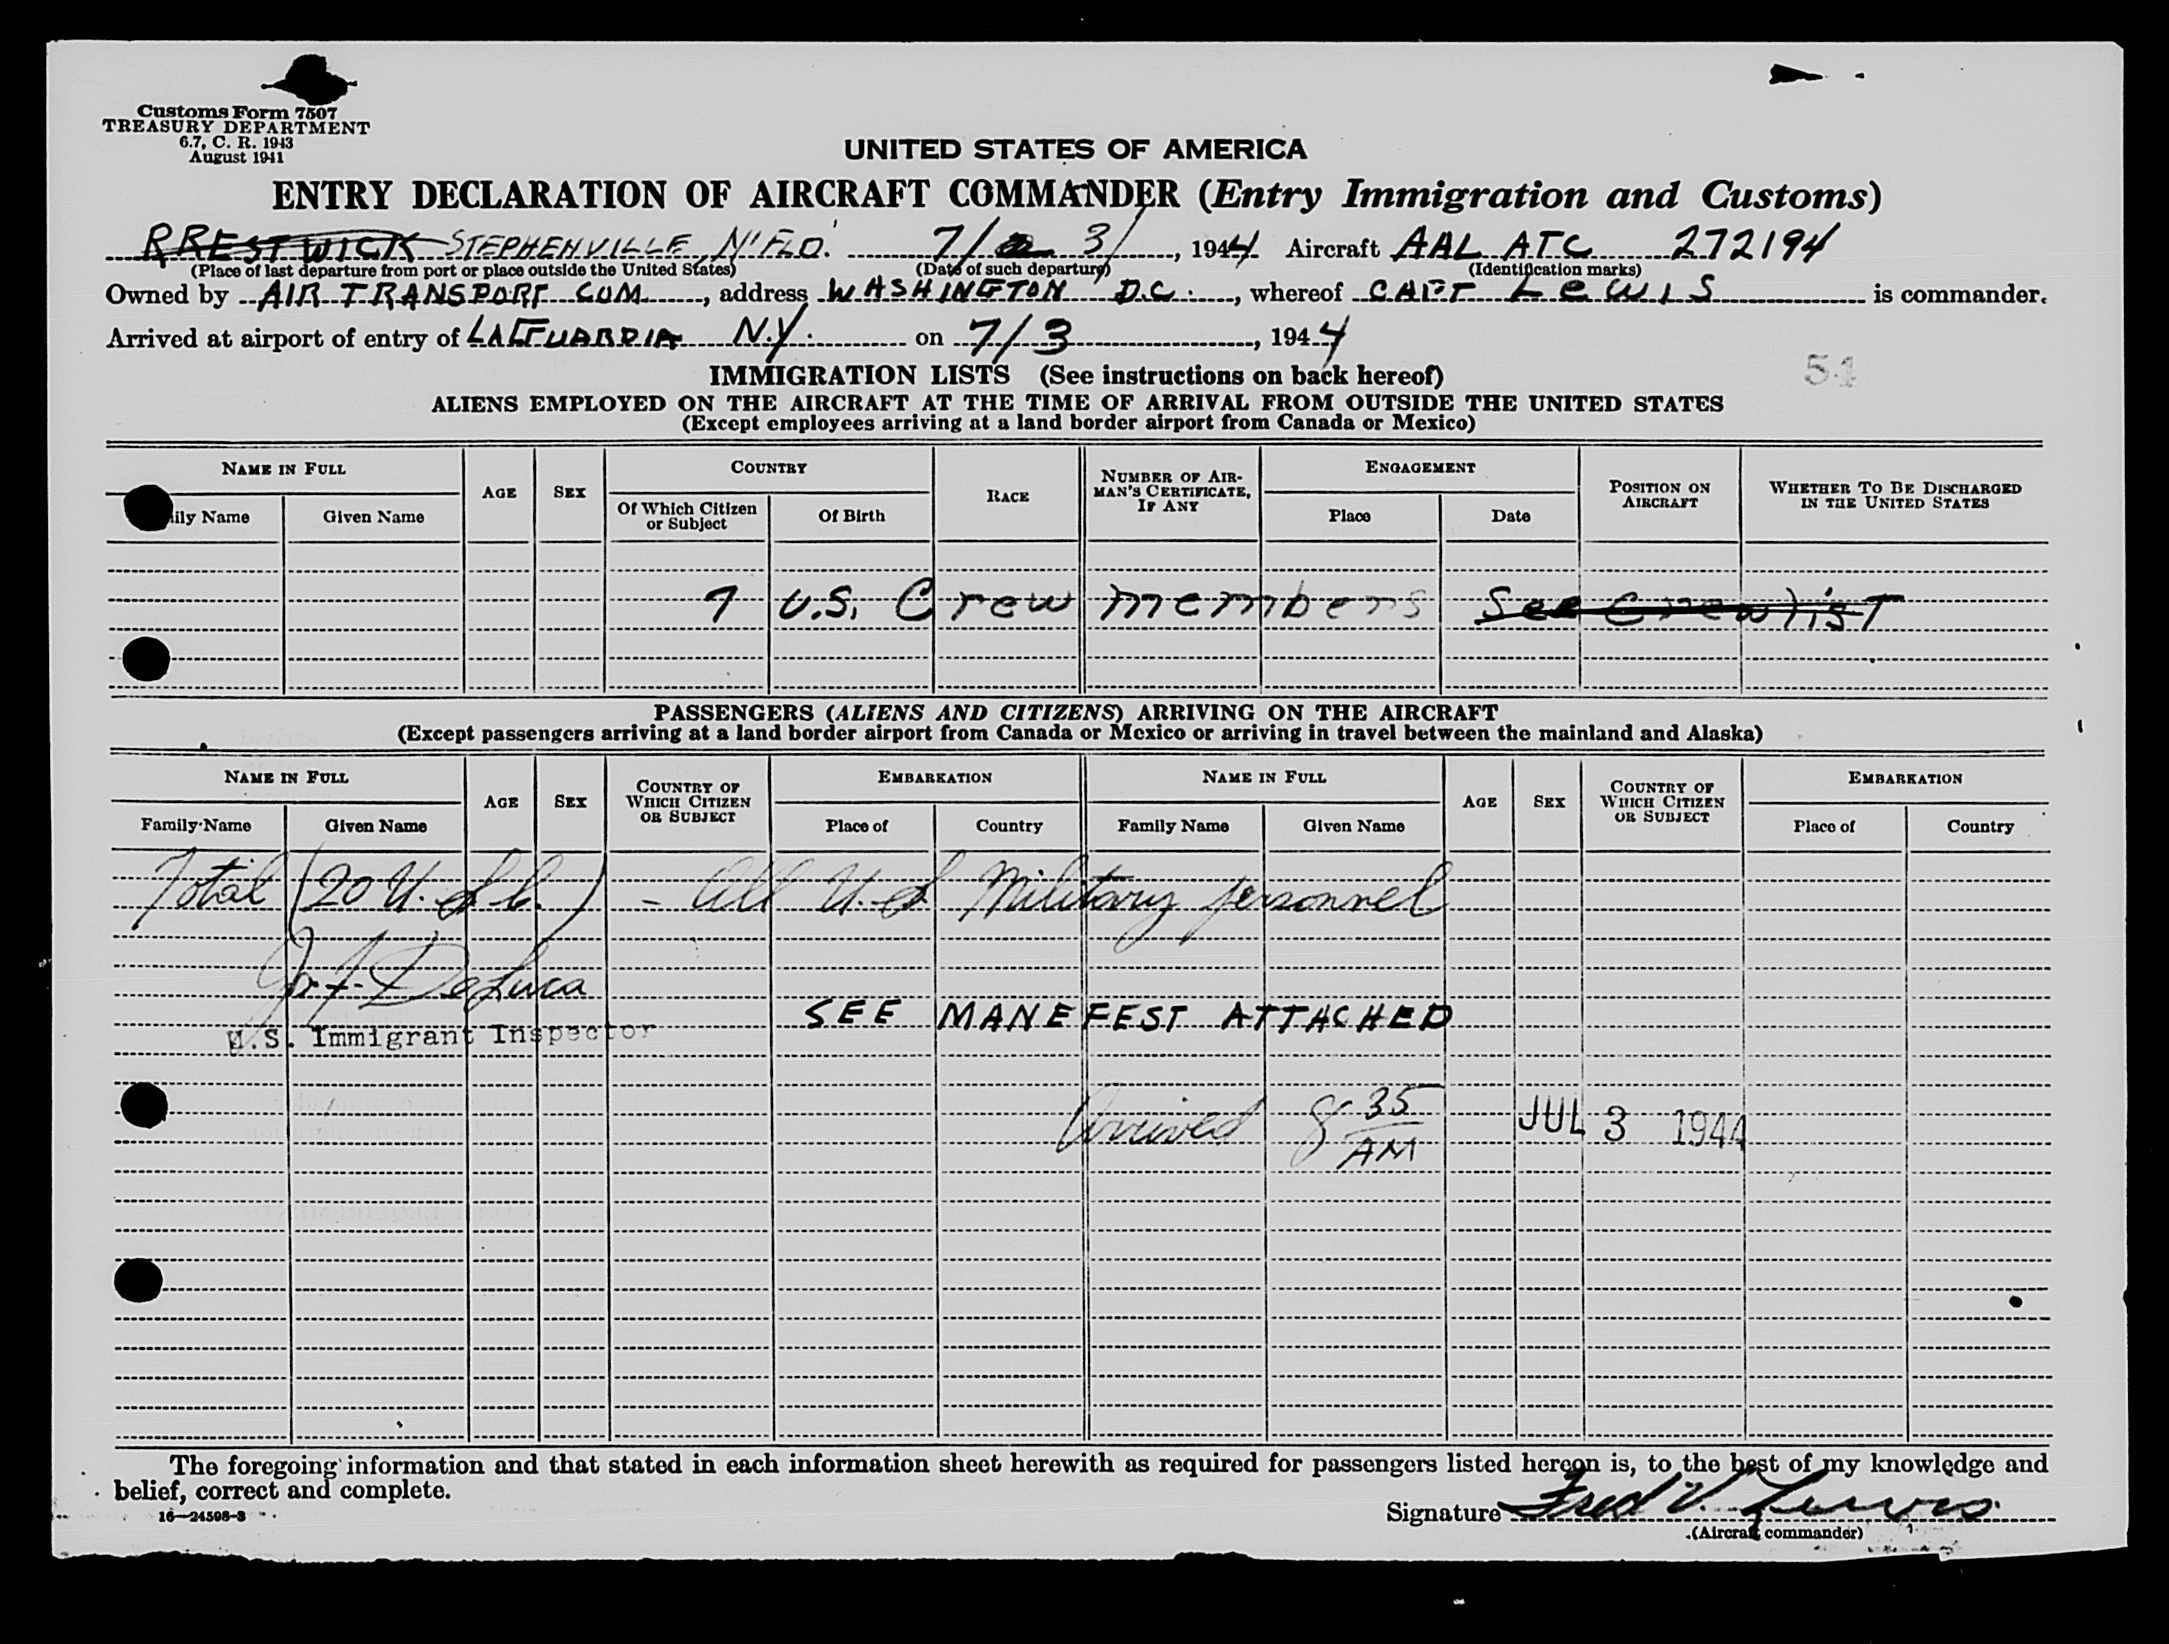 Customs Form 7507
TREASURY DEPARTMENT
6.7, C. R. 1943
August 1941
UNITED STATES OF AMERICA
ENTRY DECLARATION OF AIRCRAFT COMMANDER (Entry Immigration and Customs)
PRESTWICK STEPHENVILLE, N'FLD. 7/2 3/, 1944 Aircraft AAL ATC 272194
(Place of last departure from port or place outside the United States) (Date of such departure) (Identification marks)
Owned by AIR TRANSPORT COM, address WASHINGTON D.C., whereof CAPT LEWIS is commander.
Arrived at airport of entry of LAGUARDIA N.Y. on 7/3, 1944
54
IMMIGRATION LISTS (See instructions on back hereof)
ALIENS EMPLOYED ON THE AIRCRAFT AT THE TIME OF ARRIVAL FROM OUTSIDE THE UNITED STATES
(Except employees arriving at a land border airport from Canada or Mexico)
NAME IN FULL AGE SEX COUNTRY RACE NUMBER OF AIRMAN'S CERTIFICATE, IF ANY ENGAGEMENT POSITION ON AIRCRAFT WHETHER TO BE DISCHARGED IN THE UNITED STATES
ily Name Given Name Of Which Citizen or Subject Of Birth Place Date
7 U.S. Crew members See Crew list
PASSENGERS (ALIENS AND CITIZENS) ARRIVING ON THE AIRCRAFT
(Except passengers arriving at a land border airport from Canada or Mexico or arriving in travel between the mainland and Alaska)
NAME IN FULL AGE SEX COUNTRY OF WHICH CITIZEN OR SUBJECT EMBARKATION NAME IN FULL AGE SEX COUNTRY OF WHICH CITIZEN OR SUBJECT EMBARKATION
Family Name Given Name Place of Country Family Name Given Name Place of Country
Total (20 U.S.C.) - All U.S Military personnel
DeLuca
U.S. Immigrant Inspector
SEE MANEFEST ATTACHED
Arrived 8 35 AM JUL 3 1944
The foregoing information and that stated in each information sheet herewith as required for passengers listed hereon is, to the best of my knowledge and
belief, correct and complete.
16—24508-3
Signature Fred V. Lewis
(Aircraft commander)